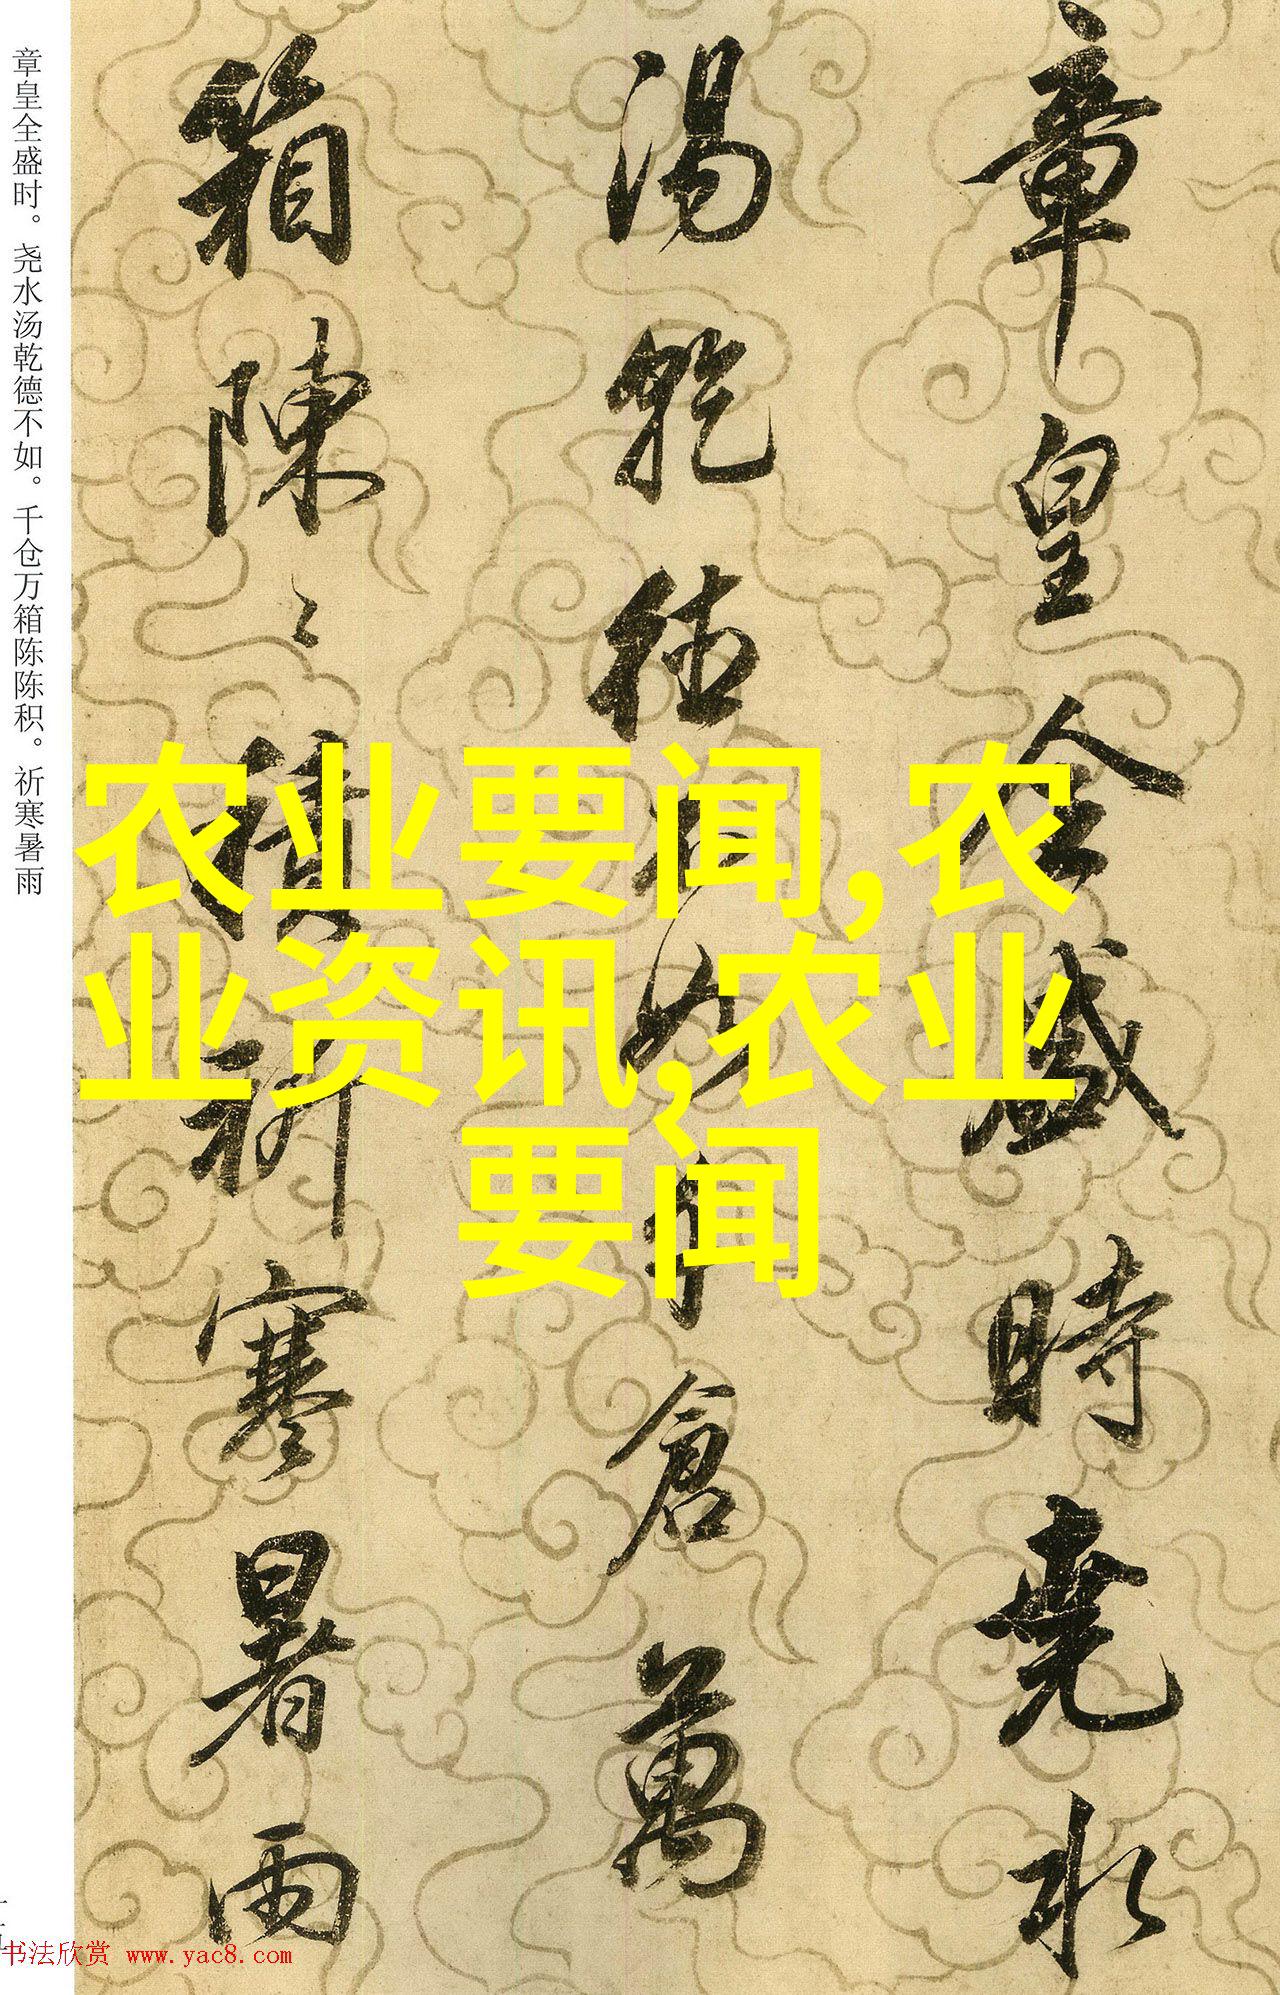 章皇全盛時堯水
湯乾德不如千倉萬
箱陳〻積祈寒暑雨
章皇全盛时。尧水汤乾德不如。千仓万箱陈陈积。祈寒暑雨
农业要闻,农
业资讯,农业
要闻
书法欣赏 www.yac8.com